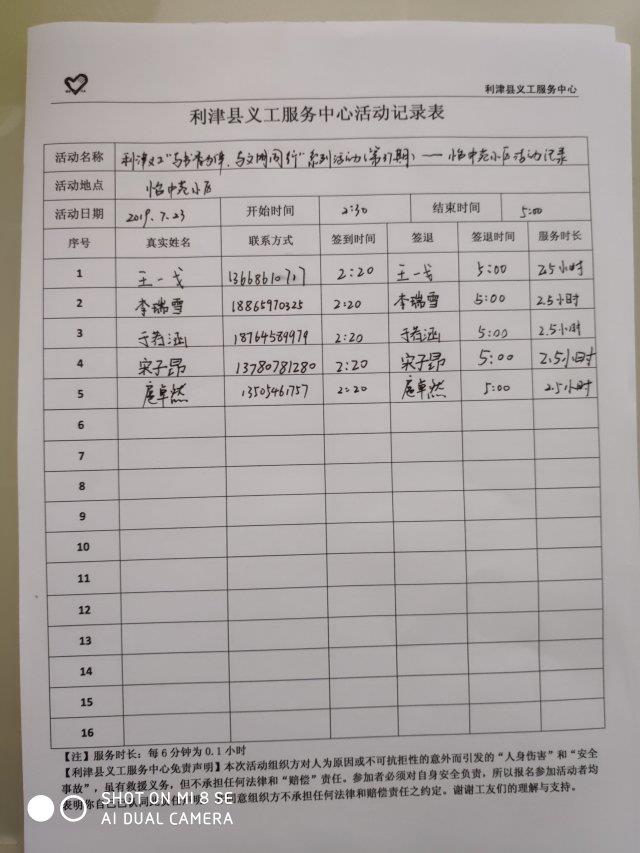 利津县义工服务中心
利津县义工服务中心活动记录表
活动名称 利津义工"与书香为伴,与文明同行"系列活动(第37期)——怡中苑小区活动记录
活动地点 怡中苑小区
活动日期 2019.7.23 开始时间 2:30 结束时间 5:00
序号 真实姓名 联系方式 签到时间 签退 签退时间 服务时长
1 王一戈 13668610717 2:20 王一戈 5:00 2.5小时
2 李瑞雪 18865970325 2:20 李瑞雪 5:00 2.5小时
3 于若涵 18764589979 2:20 于若涵 5:00 2.5小时
4 宋子昂 13780781280 2:20 宋子昂 5:00 2.5小时
5 扈卓然 13505461757 2:20 扈卓然 5:00 2.5小时
6
7
8
9
10
11
12
13
14
15
16
【注】服务时长:每6分钟为0.1小时
【利津县义工服务中心免责声明】本次活动组织方对人为原因或不可抗拒性的意外而引发的"人身伤害"和"安全
事故",虽有救援义务,但不承担任何法律和"赔偿"责任。参加者必须对自身安全负责,所以报名参加活动者均
表明你自己已认同 意组织方不承担任何法律和赔偿责任之约定。谢谢工友们的理解与支持。
SHOT ON MI 8 SE
AI DUAL CAMERA